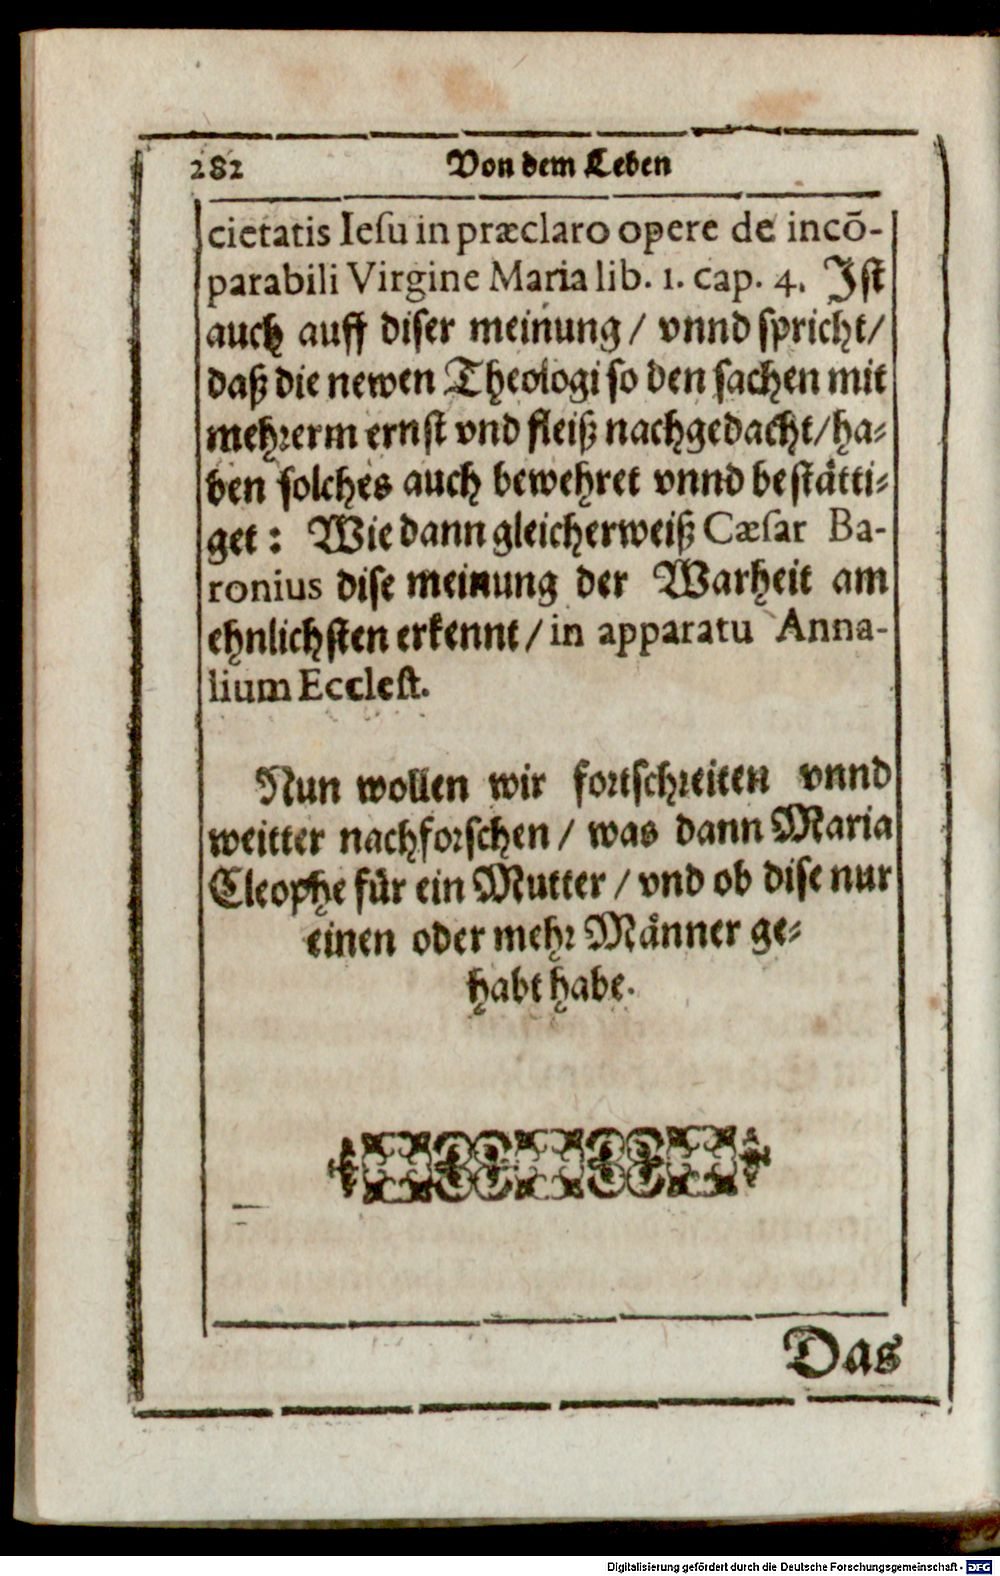 282 Von dem Leben
cietatis Iesu in præclaro opere de incõ-
parabili Virgine Maria lib. 1. cap. 4. Ist
auch auff diser meinung / vnnd spricht /
daß die newen Theologi so den sachen mit
mehrerm ernst vnd fleiß nachgedacht / ha-
ben solches auch bewehret vnnd bestätti-
get : Wie dann gleicherweiß Cæsar Ba-
ronius dise meinung der Warheit am
ehnlichsten erkennt / in apparatu Anna-
lium Ecclest.
Nun wollen wir fortschreiten vnnd
weitter nachforschen / was dann Maria
Cleophe für ein Mutter / vnd ob dise nur
einen oder mehr Männer ge-
habt habe.
Das
Digitalisierung gefördert durch die Deutsche Forschungsgemeinschaft - DFG